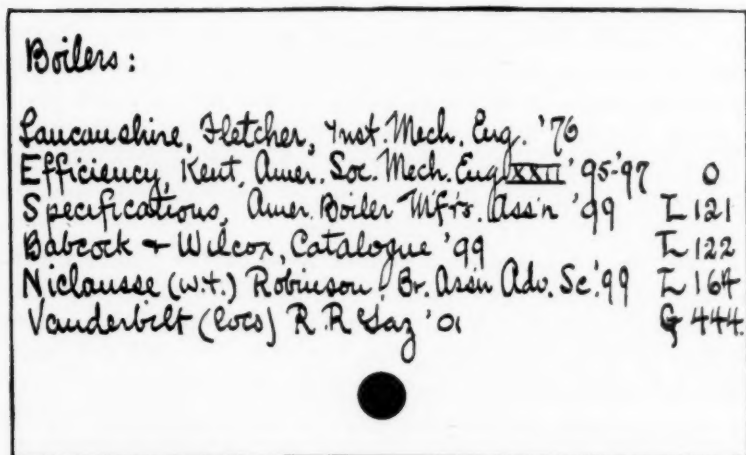 Boilers:
Lancaushire, Fletcher, Inst. Mech. Eng. '76
Efficiency, Kent, Amer. Soc. Mech. Eng XXII '95-'97 O
Specifications, Amer. Boiler M'f'rs. Ass'n '99 L 121
Babcock + Wilcox, Catalogue '99 L 122
Niclausse (w.t.) Robinson, Br. Assn Adv. Sc. '99 L 164
Vanderbilt (locs) R. R Gaz '01 G 444.